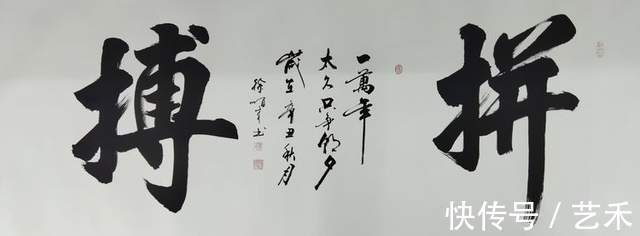 拼
一萬年
太久只争朝夕
歲在辛丑秋月
搏
快传号 / 艺禾